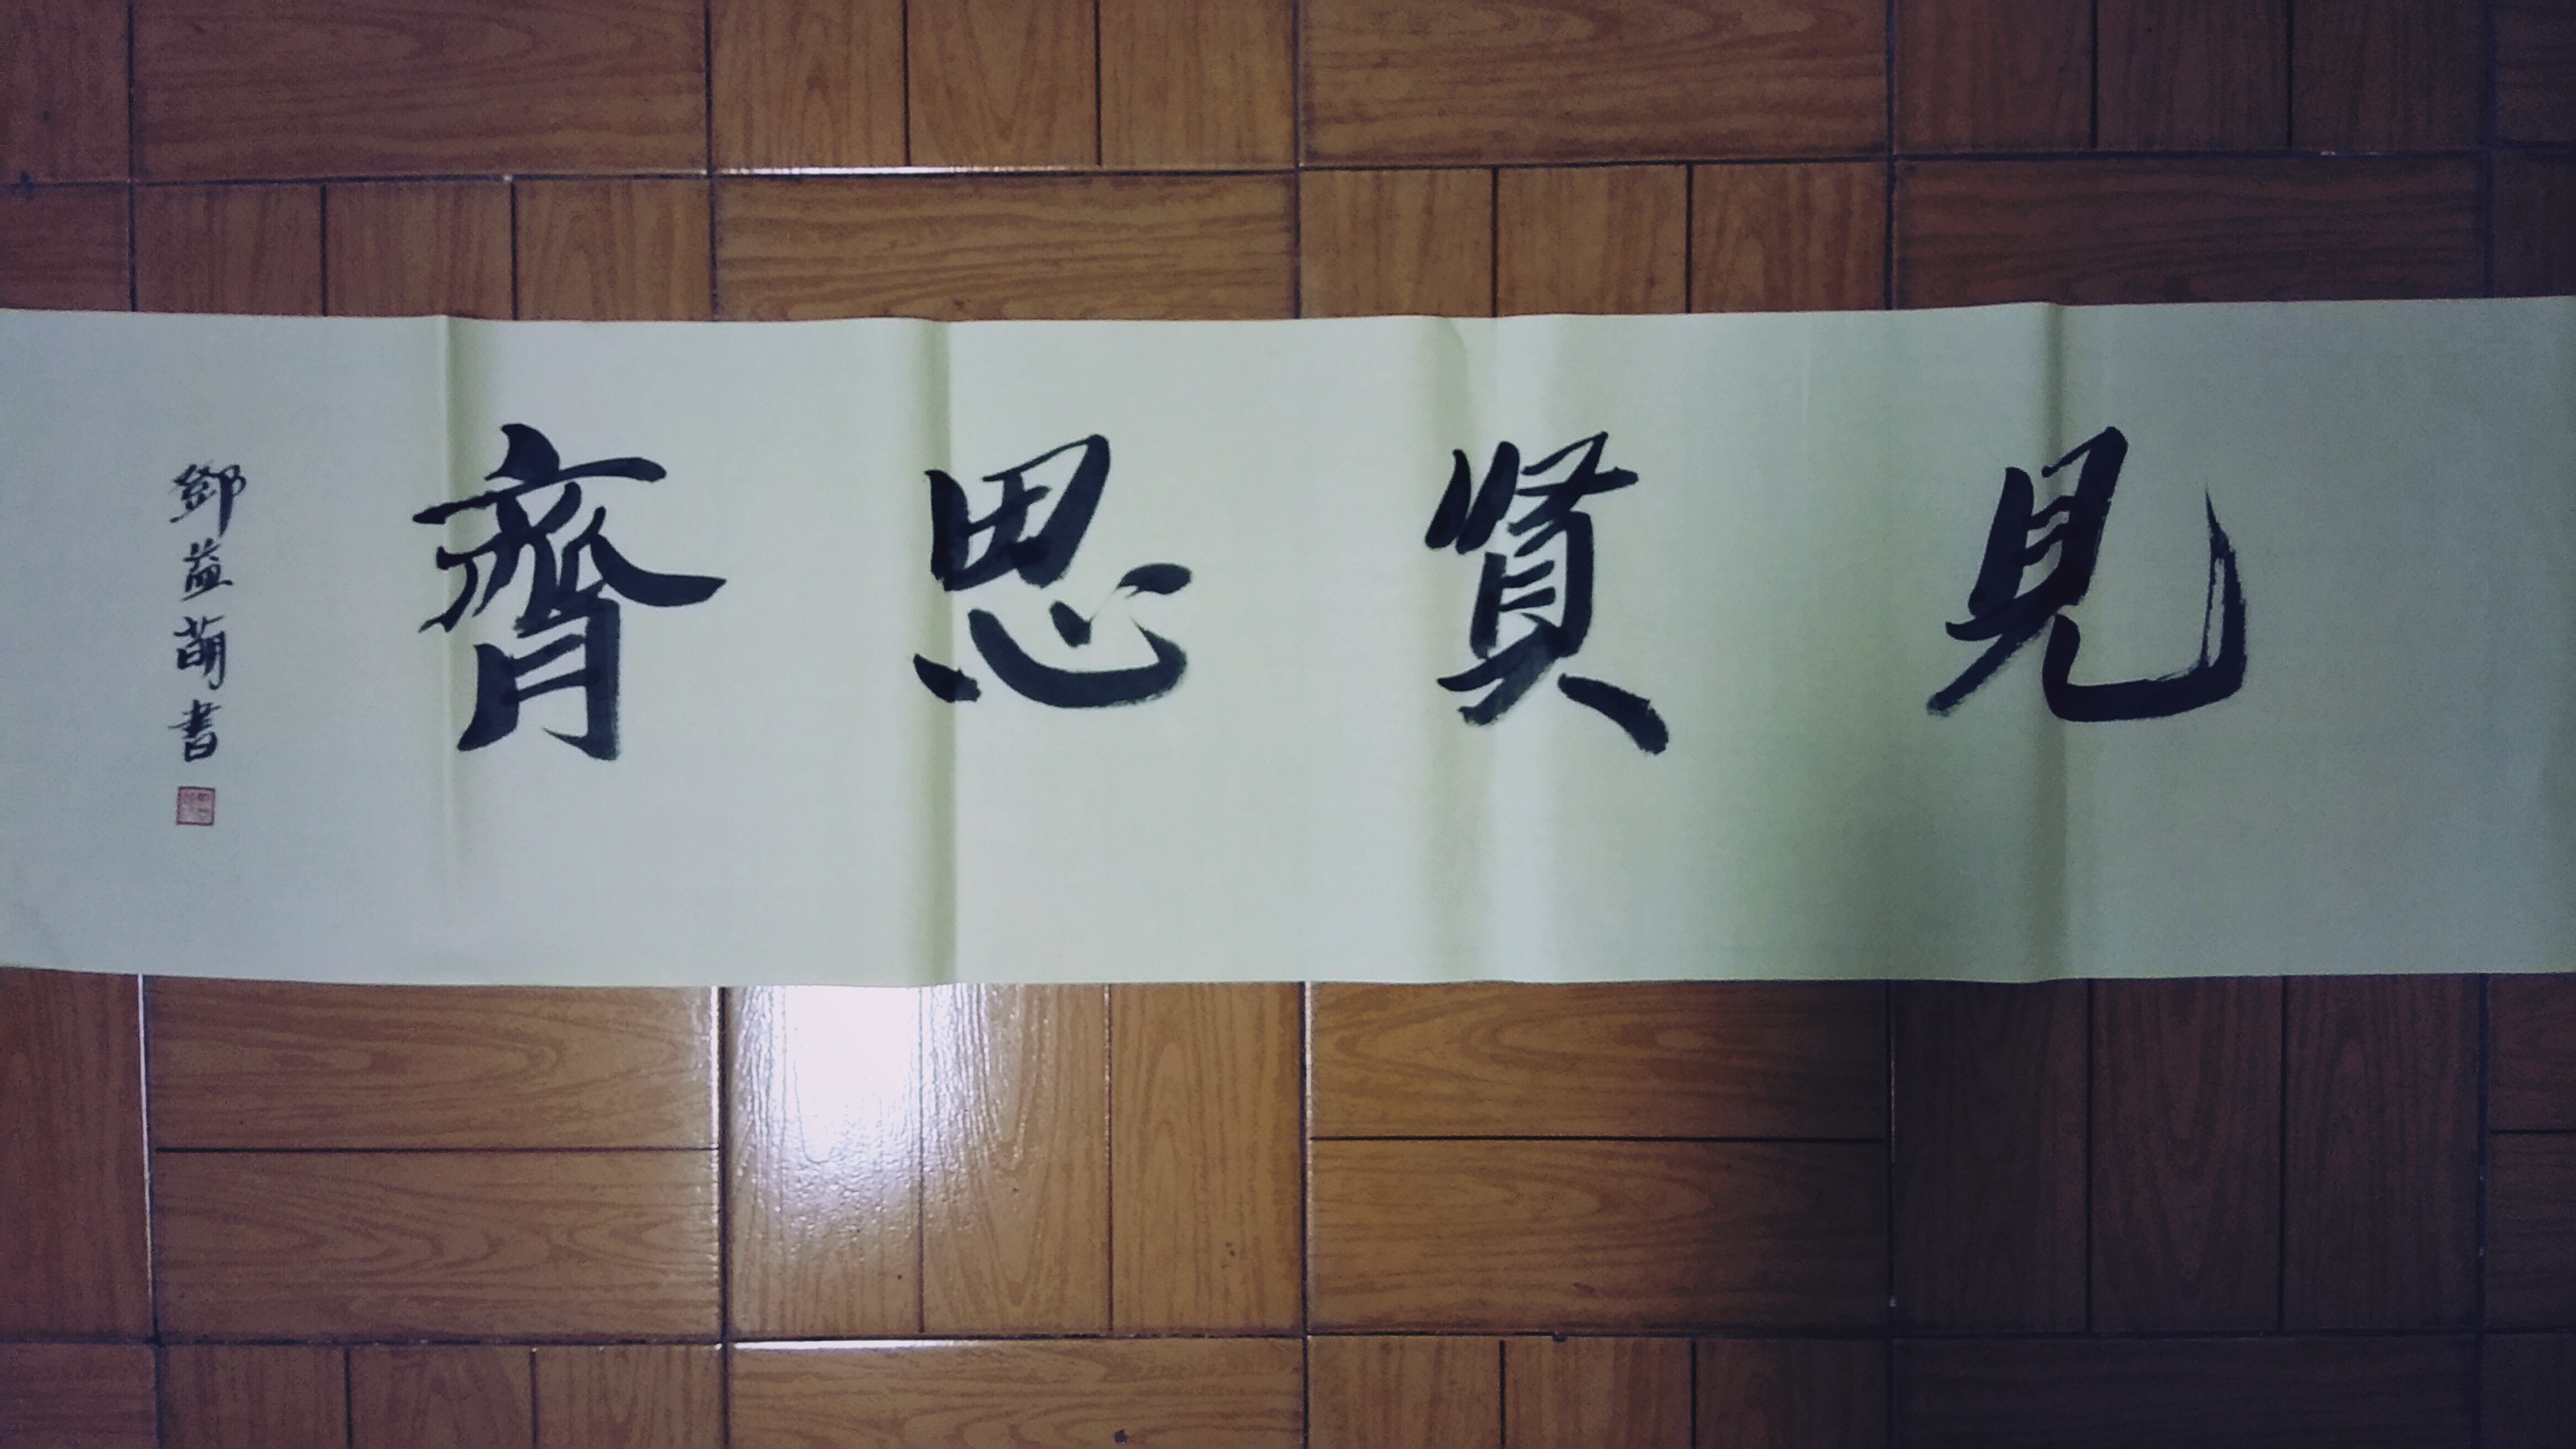 見賢思齊
鄧益萌書